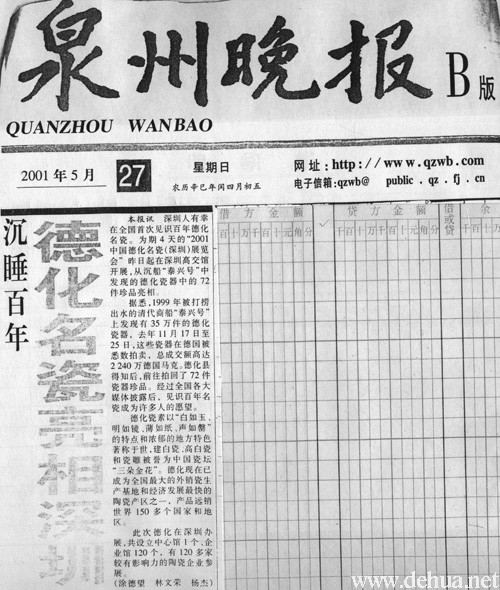 泉州晚报 B版
QUANZHOU WANBAO
2001年5月 27 星期日
农历辛巳年闰四月初五
网址:http://www.qzwb.com
电子信箱:qzwb@ public.qz.fj.cn
沉睡百年
德化名瓷亮相深圳
本报讯 深圳人有幸
在全国首次见识百年德化
名瓷。为期4天的“2001
中国德化名瓷(深圳)展览
会”昨日起在深圳高交馆
开展,从沉船“泰兴号”中
发现的德化瓷器中的72
件珍品亮相。
据悉,1999年被打捞
出水的清代商船“泰兴号”
上发现有35万件的德化
瓷器,去年11月17日至
25日,这些瓷器在德国被
悉数拍卖,总成交额高达
2240万德国马克。德化县
得知后,前往拍回了72件
瓷器珍品。经过全国各大
媒体披露后,见识百年名
瓷成为许多人的愿望。
德化瓷素以“白如玉、
明如镜、薄如纸、声如磬”
的特点和浓郁的地方特色
著称于世,建白瓷、高白瓷
和瓷雕被誉为中国瓷坛
“三朵金花”。德化现在已
成为全国最大的外销瓷生
产基地和经济发展最快的
陶瓷产区之一,产品远销
世界150多个国家和地
区。
此次德化在深圳办
展,共设立中心馆1个、企
业馆120个,有120多家
较有影响力的陶瓷企业参
展。
(涂德望 林文荣 杨杰)
借方金额
百十万千百十元角分
贷方金额
千百十万千百十元角分
借或贷
余
千百十万千
www.dehua.net